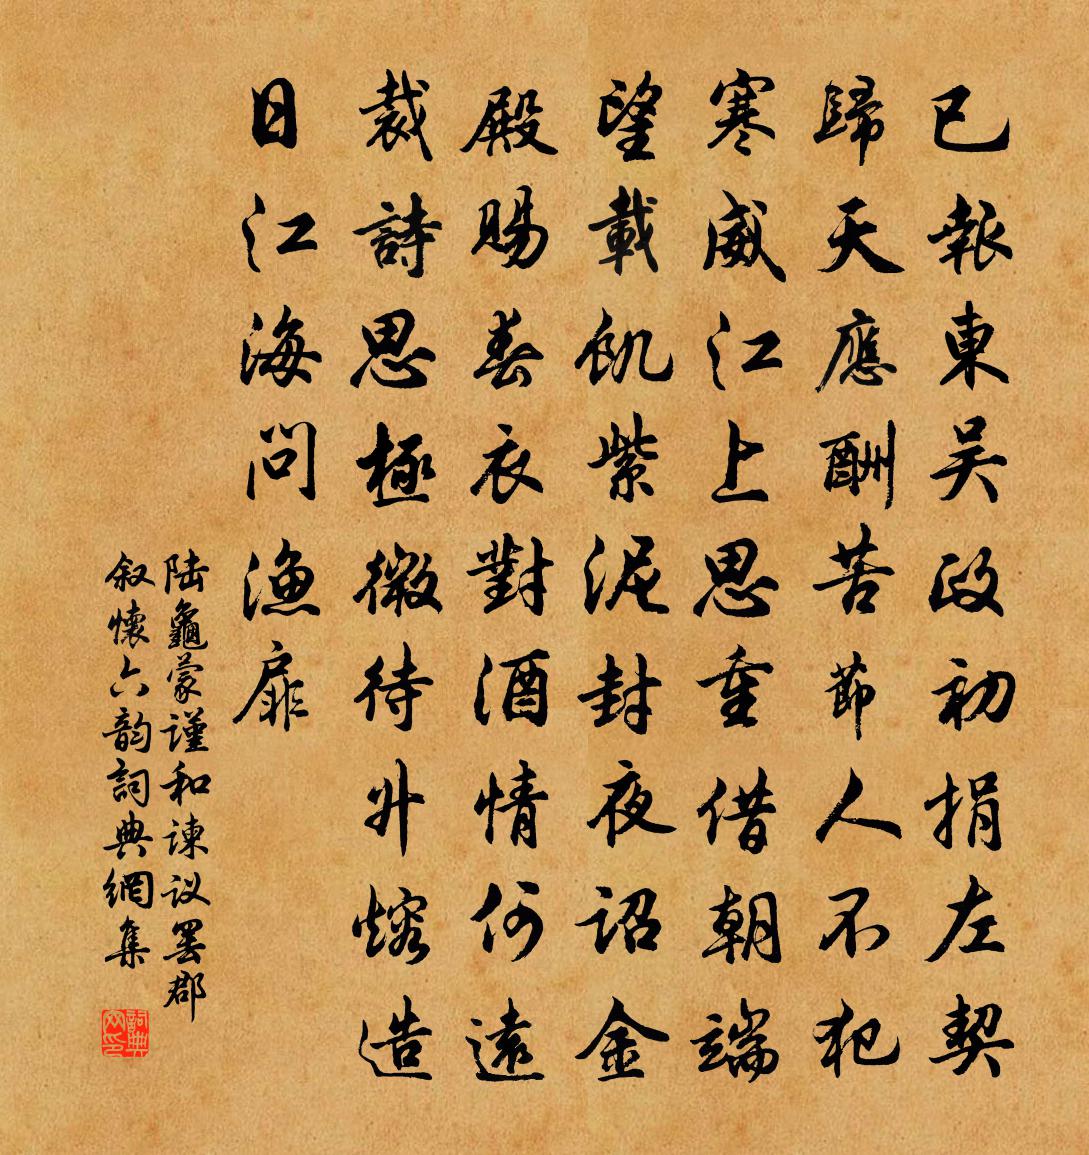 已報東吴政初捐左契
歸天應酬苦節人不犯
寒威江上思重借朝端
望載飢紫泥封夜詔金
殿賜春衣對酒情何遠
裁詩思極微待升熔造
日江海問漁扉
陆龜蒙谨和谏议罢郡
叙懷六韵詞典網集
詞典網印